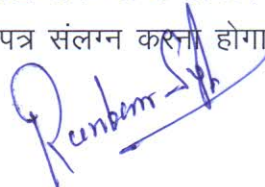 पत्र संलग्न करना होगा